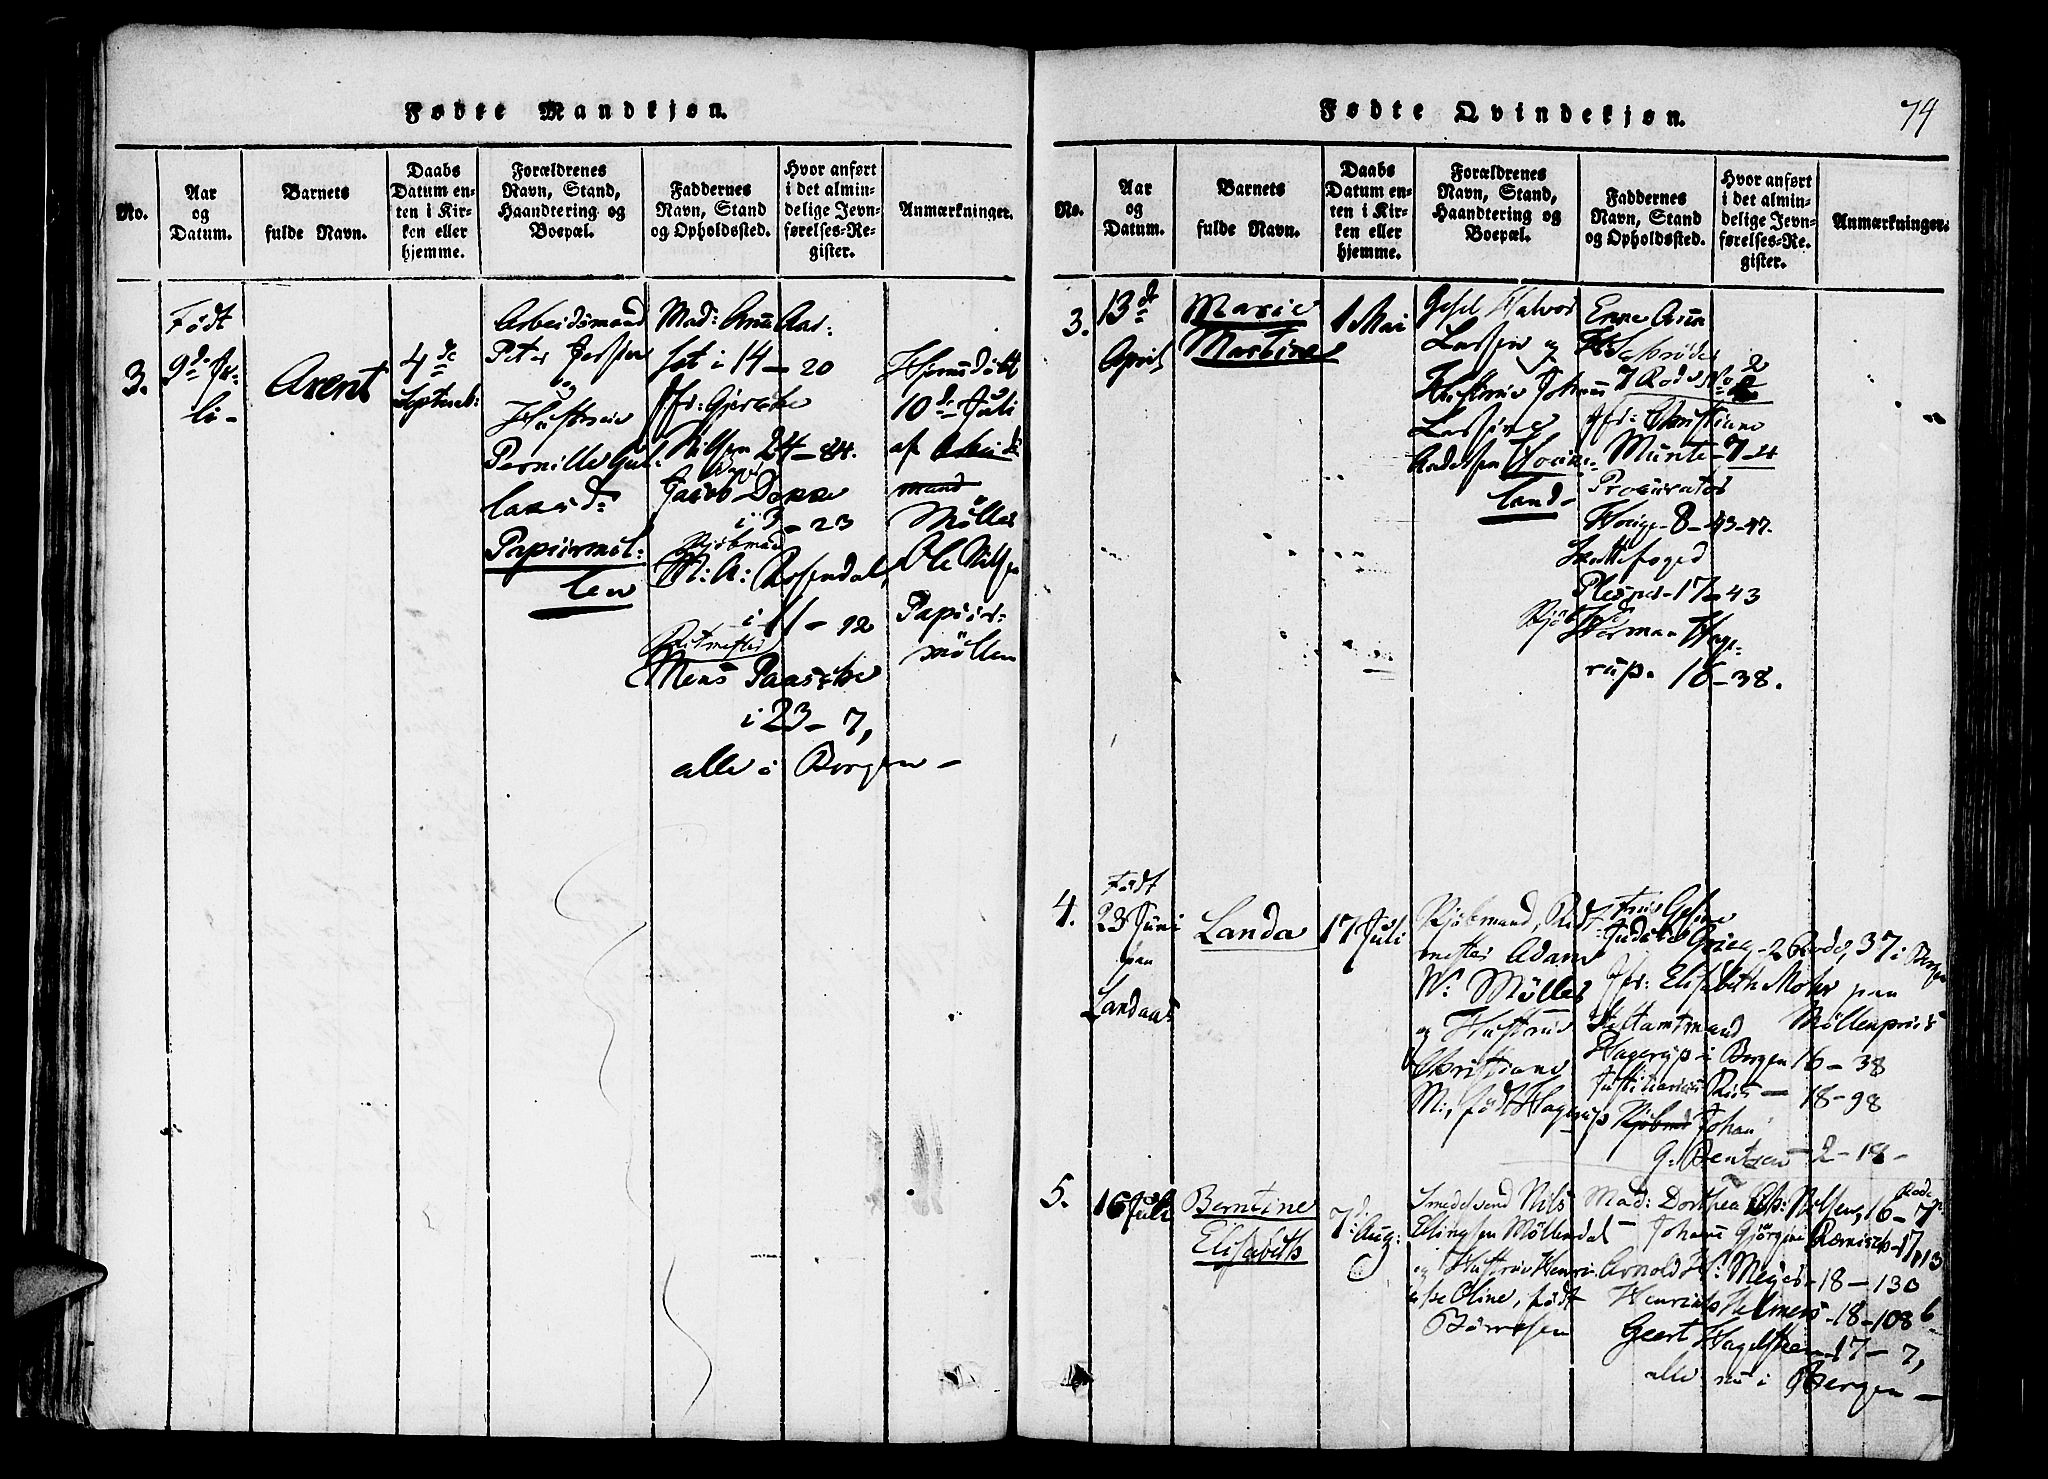 Fødte Mandkjøn.
No.
Aar
og
Datum.
Barnets
fulde Navn.
Daabs
Datum en-
ten i Kir-
ken eller
hjemme.
Forældrenes
Navn, Stand,
Haandtering og
Boepæl.
Faddernes
Navn, Stand
og Opholdssted.
Hvor anført
i det almin-
delige Jevn-
førelses-Re-
gister.
Anmærkninger.
3.
Født
9de Ju-
li-
Arent
4de
Septemb:
Arbeidsmand
Peter
og
Hustrue
Pernille Gul-
Papiirmøl:
len
Mad:
set i 14 - 20
Jfr: Gjertche
Nilsen 24 - 84.
Jacob Dekke
i 3 - 23
Kjøbmand
M: A: Rosendal,
i 11 - 12
Ritmester
Mens Paasche
i 23 - 7,
alle i Bergen -
Hjemmedøbt
10de Juli
af
mand
Møller
Ole Nilsen
Papiir-
møllen
Fødte Qvindekjøn.
74
No.
Aar
og
Datum.
Barnets
fulde Navn.
Daabs
Datum en-
ten i Kir-
ken eller
hjemme.
Forældrenes
Navn, Stand,
Haandtering og
Boepæl.
Faddernes
Navn, Stand
og Opholdssted.
Hvor anført
i det almin-
delige Jevn-
førelses-Re-
gister.
Anmærkninger.
3.
13de
April
Marie
Martine
1 Mai
Halvor
Lassen og
Hustrue Johanne
Lassine
Andersen
land-
7 Rode No 2
Jfr: Christiane
Munte - 7 - 4
Procurator
8 - 43-47.
17 - 43
Kjøbmd
Herman Hage-
rup. 16 - 38.
4.
Født
23 Juni
paa
Landaas
Landa
17 Juli
Kjøbmand, Rit-
mester Adam
W: Møller
og Hustrue
Christiane
M:, født Hagerup
Frue Gesine
Judithe Grieg - 2 Rode, 37 i Bergen
Jfr: Elisabeth Mohr paa
Stiftamtmand Møllenpriis
Hagerup i Bergen 16 - 38
Justitiarius Riis - 18 - 98
Kjøbmd Johan
G: Bentzen - 2 - 18 -
5.
16 Juli
Berntine
Elisabeth
7: Aug:
Smedesvend Nils
Elingsen Møllendal -
og Hustrue Henri-
Oline, født
Børresen
Mad: Dorthea Nilsen, 16 - 7
Rode
Johanne Gjørgine 17, 113
Arnold H: Meyer - 18 - 130
Henrich Helmers - 18 - 108 6
Geert Hagelsteen - 17 - 7,
alle nu i Bergen -